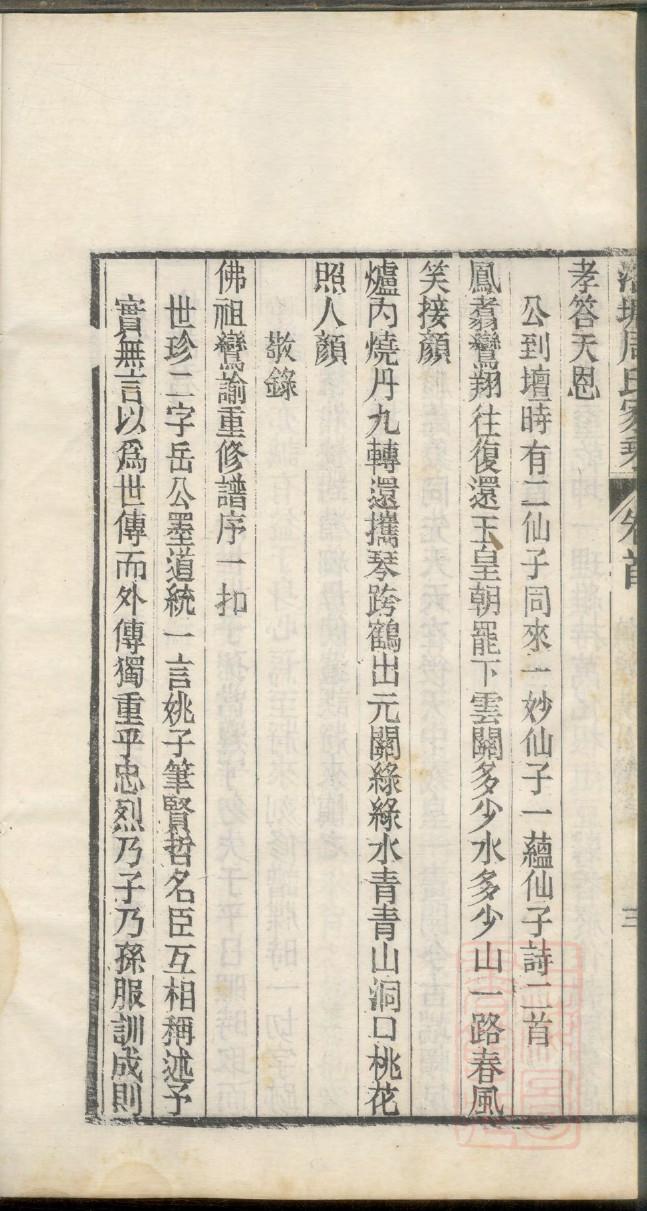 周氏家
卷首
三
孝答天恩
公到壇時有二仙子同來一妙仙子一蘊仙子詩二首
鳳翥鸞翔往復還玉皇朝罷下雲關多少水多少山一路春風
笑接顏
爐內燒丹九轉還攜琴跨鶴出元關綠綠水青青山洞口桃花
照人顏
敬錄
佛祖鸞諭重修譜序一扣
世珍二字岳公墨道統一言姚子筆賢哲名臣互相稱述予
實無言以爲世傳而外傳獨重乎忠烈乃子乃孫服訓成則